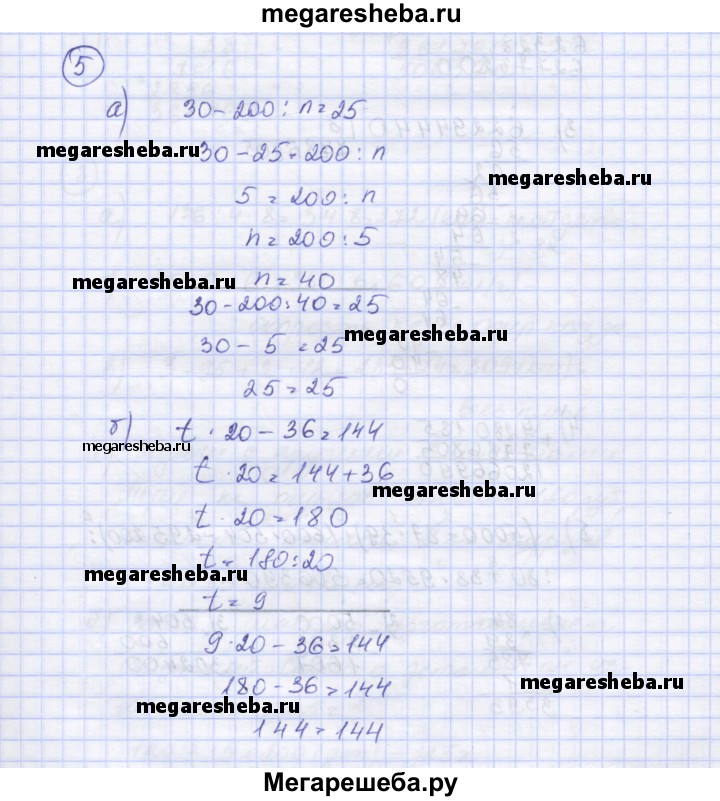 megaresheba.ru
5
а) 30 - 200 : n = 25
megaresheba.ru
30 - 25 = 200 : n
megaresheba.ru
5 = 200 : n
n = 200 : 5
megaresheba.ru
n = 40
30 - 200 : 40 = 25
megaresheba.ru
30 - 5 = 25
25 = 25
б) t · 20 - 36 = 144
megaresheba.ru
t · 20 = 144 + 36
megaresheba.ru
t · 20 = 180
t = 180 : 20
megaresheba.ru
t = 9
9 · 20 - 36 = 144
180 - 36 = 144
megaresheba.ru
megaresheba.ru
144 = 144
Мегарешеба.ру